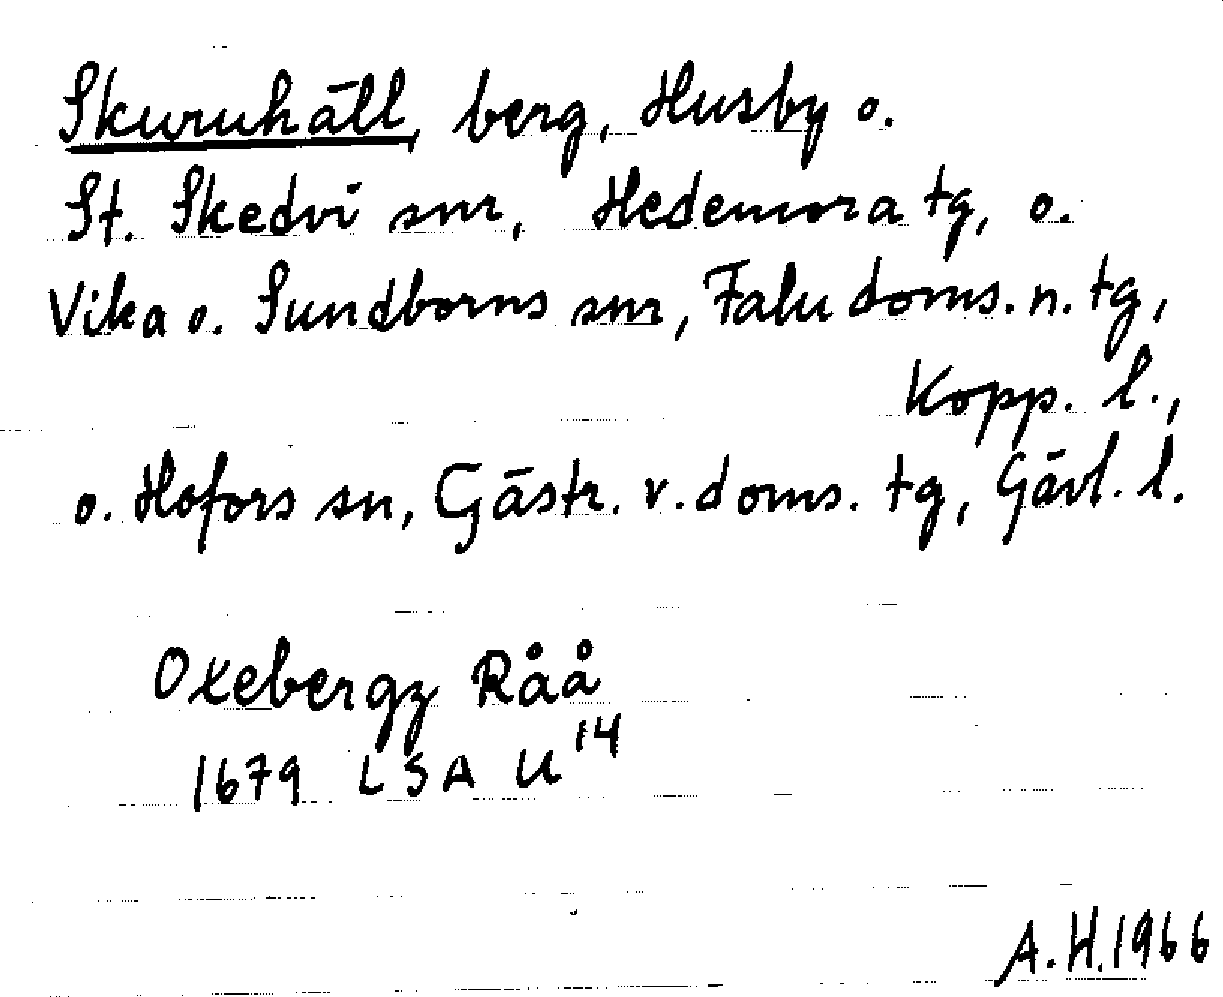 Skuruhäll, berg, Husby o.
St. Skedvi snr, Hedemora tg, o.
Vika o. Sundborns snr, Falu doms. n. tg,
Kopp. l.,
o. Hofors sn, Gästr. v. doms. tg, Gävl. l.
Oxebergz Råå
1679 LSA U14
A.H.1966